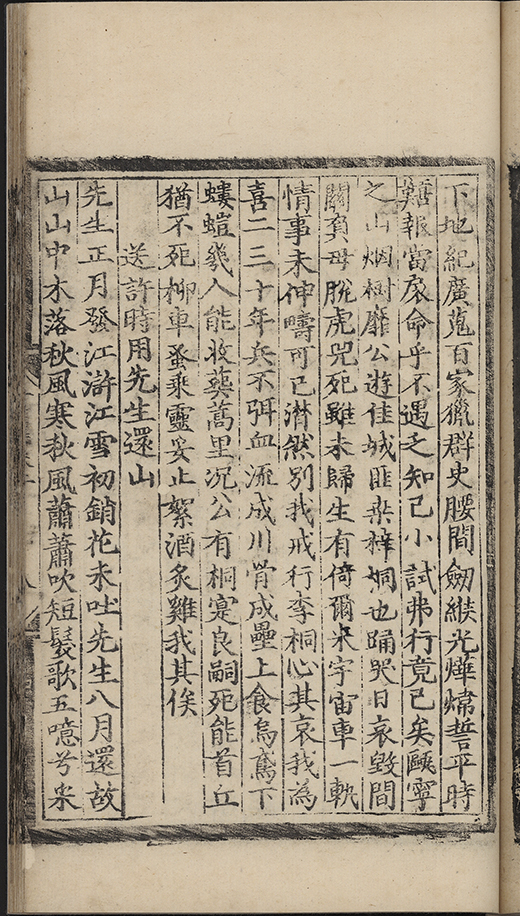 下地紀廣蒐百家獵群史腰間劒緱光燁煒誓平時
難報當哀命乎不遇之知己小試弗行竟已矣歐寧
之山烟樹靡公遊佳城匪桑梓垌也踊哭日哀毀間
關負母脫虎兕死雖未歸生有倚爾来宇宙車一軌
情事未伸疇可已潸然別我戒行李桐心其哀我為
喜二三十年兵不弭血流成川骨成壘上食烏鳶下
螻螘幾人能收葬蒿里况公有桐寔良嗣死能首丘
猶不死柳車蚤乘靈妥止絮酒炙雞我其俟
送許時用先生還山
先生正月發江滸江雪初銷花未吐先生八月還故
山山中木落秋風寒秋風蕭蕭吹短髮歌五噫兮来